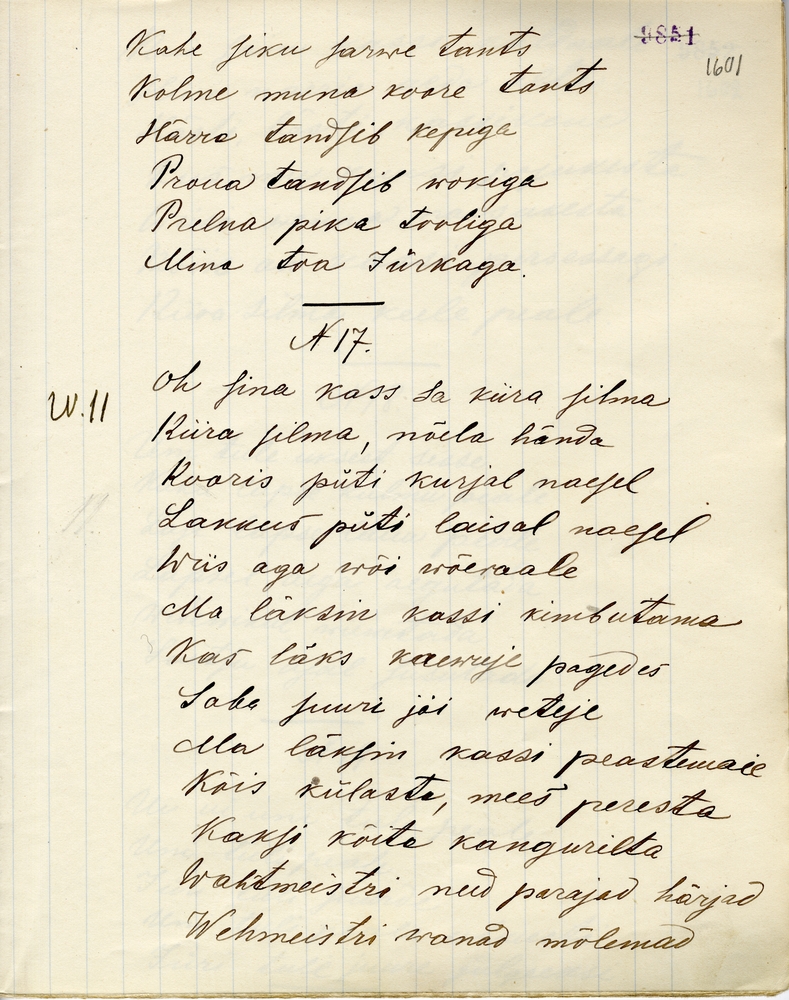 9851
1601
Kahe siku sarwe tants
Kolme muna koore tants
Härra tandsib kepiga
Proua tandsib wokiga
Prelna pika tooliga
Mina toa Jürkaga.
N 17.
W. 11
Oh sina kass sa kiira silma
Kiira silma, nõela hända
Kooris püti kurjal naesel
Lakkus püti laisal naesel
Wiis aga wõi wõeraale
Ma läksin kassi kimbutama
Kas läks kaewuje pagedes
Saba suuri jäi weteje
Ma läksin kassi peastemaie
Köis külasta, mees peresta
Kaksi köita kangurilta
Wahtmeistri need parajad härjad
Wehmeistri wanad mõlemad